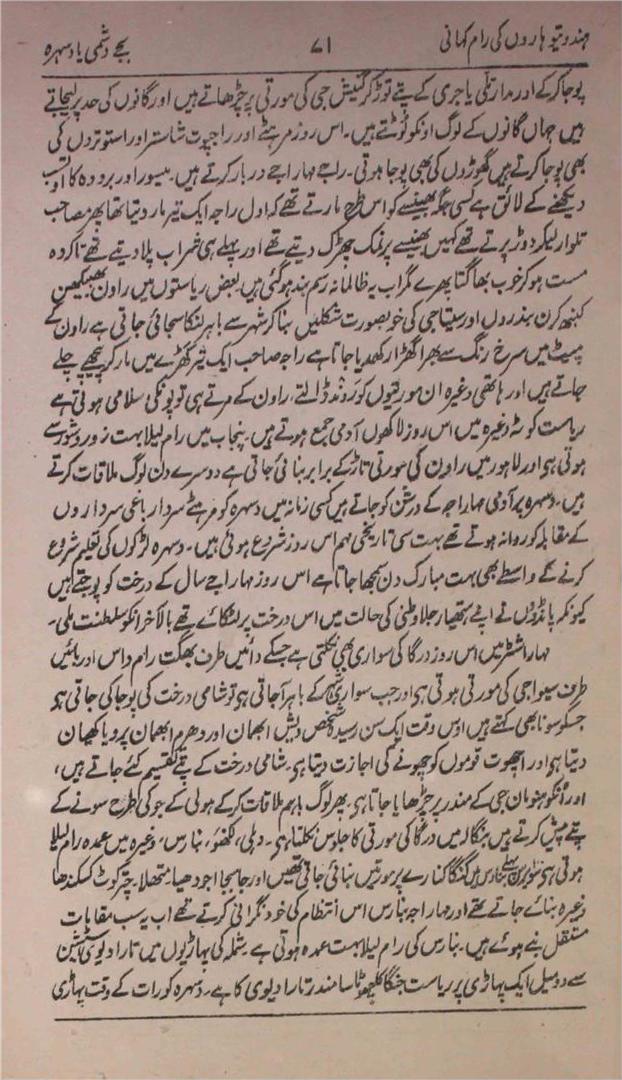 ہندو تیوہاروں کی رام کہانی ۷۱ بجے دشمی یا دسہرہ
پوجا کرکے اور مدار تلی یا جری کے پتے توڑ کر گنیش جی کی مورتی پر چڑھاتے ہیں اور گانوں کی حد پر لیجاتے
ہیں جہاں گانوں کے لوگ اونکو لُوٹتے ہیں۔ اس روز مرہٹے اور راجپوت شاستر اور استوتروں کی
بھی پوجا کرتے ہیں گھوڑوں کی بھی پوجا ہوتی۔ راجے مہاراجے دربار کرتے ہیں۔ میسور اور برودہ کا اوتسب
دیکھنے کے لائق ہے کسی جگہ بھینسے کو اس طرح مارتے تھے کہ اول راجہ ایک تیر مار دیتا تھا پھر مصاحب
تلوار لیکر دوڑ پڑتے تھے کہیں بھینسے پر نمک چھڑک دیتے تھے اور پہلے ہی شراب پلا دیتے تھے تاکہ وہ
مست ہوکر خوب بھاگتا پھرے مگر اب یہ ظالمانہ رسم بند ہوگئی ہیں۔ بعض ریاستوں میں راون بھبیکھن
کنبھ کرن بندروں اور سیتا جی کی خوبصورت شکلیں بناکر شہر سے باہر لنکا سجائی جاتی ہے راون کے
پیٹ میں سرخ رنگ سے بھرا گھڑا رکھدیا جاتا ہے راجہ صاحب ایک تیر گھڑے میں مار کر پیچھے چلے
جاتے ہیں اور ہاتھی وغیرہ ان مورتیوں کو روند ڈالتے، راون کے مرتے ہی توپونکی سلامی ہوتی ہے
ریاست کوٹہ وغیرہ میں اس روز لاکھوں آدمی جمع ہوتے ہیں۔ پنجاب میں رام لیلا بہت زور و شور سے
ہوتی ہی اور لاہور میں راون کی مورتی تاڑ کے برابر بنائی جاتی ہے دوسرے دن لوگ ملاقات کرتے
ہیں۔ دسہرہ پر آدمی مہاراجہ کے درشن کو جاتے ہیں کسی زمانہ میں دسہرہ کو مرہٹے سردار باغی سرداروں
کے مقابلہ کو روانہ ہوتے تھے بہت سی تاریخی مہم اس روز شروع ہوئی ہیں۔ دسہرہ لڑکوں کی تعلیم شروع
کرنے کے واسطے بھی بہت مبارک دن سمجھا جاتا ہے اس روز مہاراجے سال کے درخت کو پوجتے ہیں
کیونکہ پانڈوں نے اپنے ہتھیار جلاوطنی کی حالت میں اس درخت پر لٹکائے تھے بالآخر انکو سلطنت ملی۔
مہاراشٹر میں اس روز درگا کی سواری بھی نکلتی ہے جسکے دائیں طرف بھگت رام داس اور بائیں
طرف سیوا جی کی مورتی ہوتی ہی اور جب سواری شہر کے باہر آجاتی ہی تو شامی درخت کی پوجا کی جاتی ہی
جسکو سونا بھی کہتے ہیں اوس وقت ایک سن رسیدہ شخص دیش ابھمان اور دھرم ابھمان پر ویاکھیان
دیتا ہی اور اچھوت قوموں کو چھونے کی اجازت دیتا ہی۔ شامی درخت کے پتے تقسیم کئے جاتے ہیں،
اور انکو ہنومان جی کے مندر پر چڑھایا جاتا ہی۔ پھر لوگ باہم ملاقات کرکے ہولی کے جو کی طرح سونے کے
پتے پیش کرتے ہیں بنگالہ میں درگا کی مورتی کا جلوس نکلتا ہی۔ دہلی، لکھنؤ، بنارس، وغیرہ میں عمدہ رام لیلا
ہوتی ہی سو برس پہلے بنارس میں گنگا کنارے پر مورتیں بنائی جاتی تھیں اور جابجا اجودھیا۔ متھلا۔ چترکوٹ کسکندھا
وغیرہ بنائے جاتے تھے اور مہاراجہ بنارس اس انتظام کی خود نگرانی کرتے تھے اب یہ سب مقامات
مستقل بنے ہوئے ہیں۔ بنارس کی رام لیلا بہت عمدہ ہوتی ہے۔ شملہ کی پہاڑیوں میں تارا دیوی سٹیشن
سے دو میل ایک پہاڑی پر ریاست جنگا کا چھوٹا سا مندر تارا دیوی کا ہے۔ دسہرہ کو رات کے وقت پہاڑی